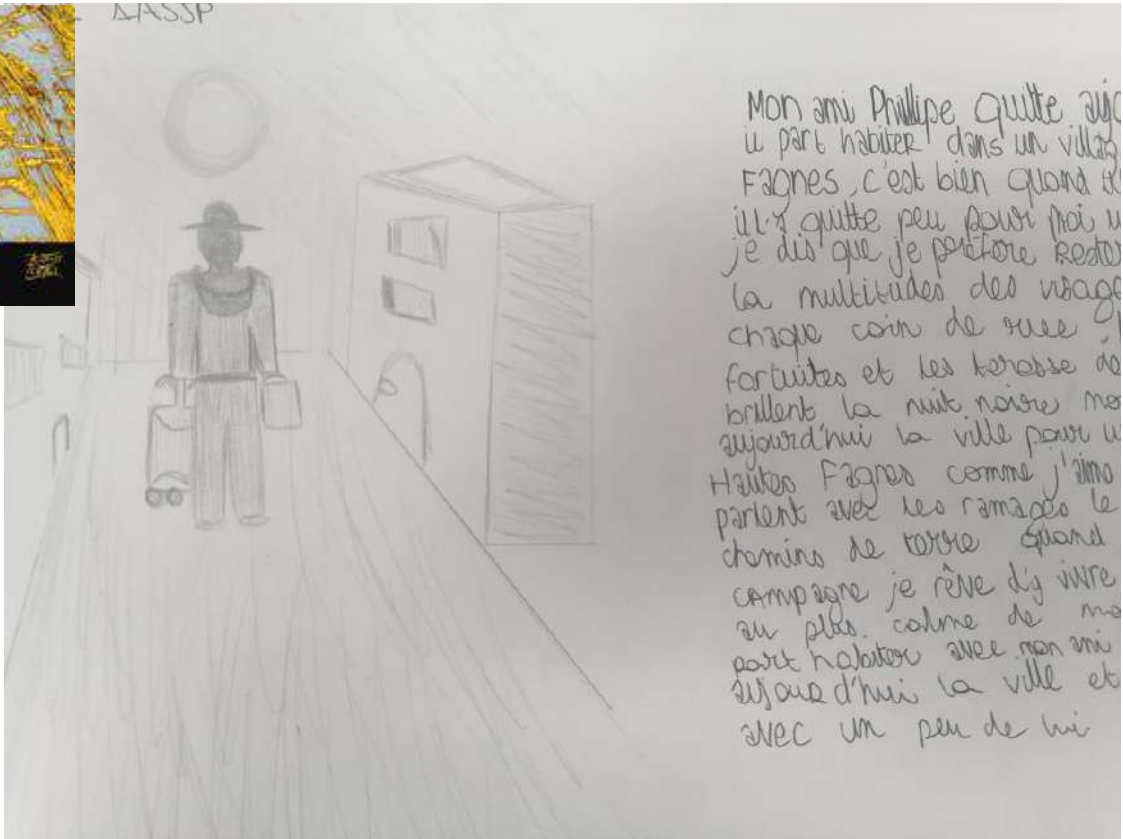 AASSP
Mon ami Phillipe quitte
il part habiter dans un
Fagnes, c'est bien quand
quitte peu pour
je dis que je préfore Rester
la multitudes des visage
chaque coin de ruee
fortuites et les terasse de
brillent la nuit noire
aujourd'hui la ville pour
Hautes Fagnes comme j'aime
parlent avec les ramages le
chemins de terre Quand
campagne je rêve d'y vivre
au plus calme de
part habiter avec mon ami
aujourd'hui la ville et
avec un peu de lui